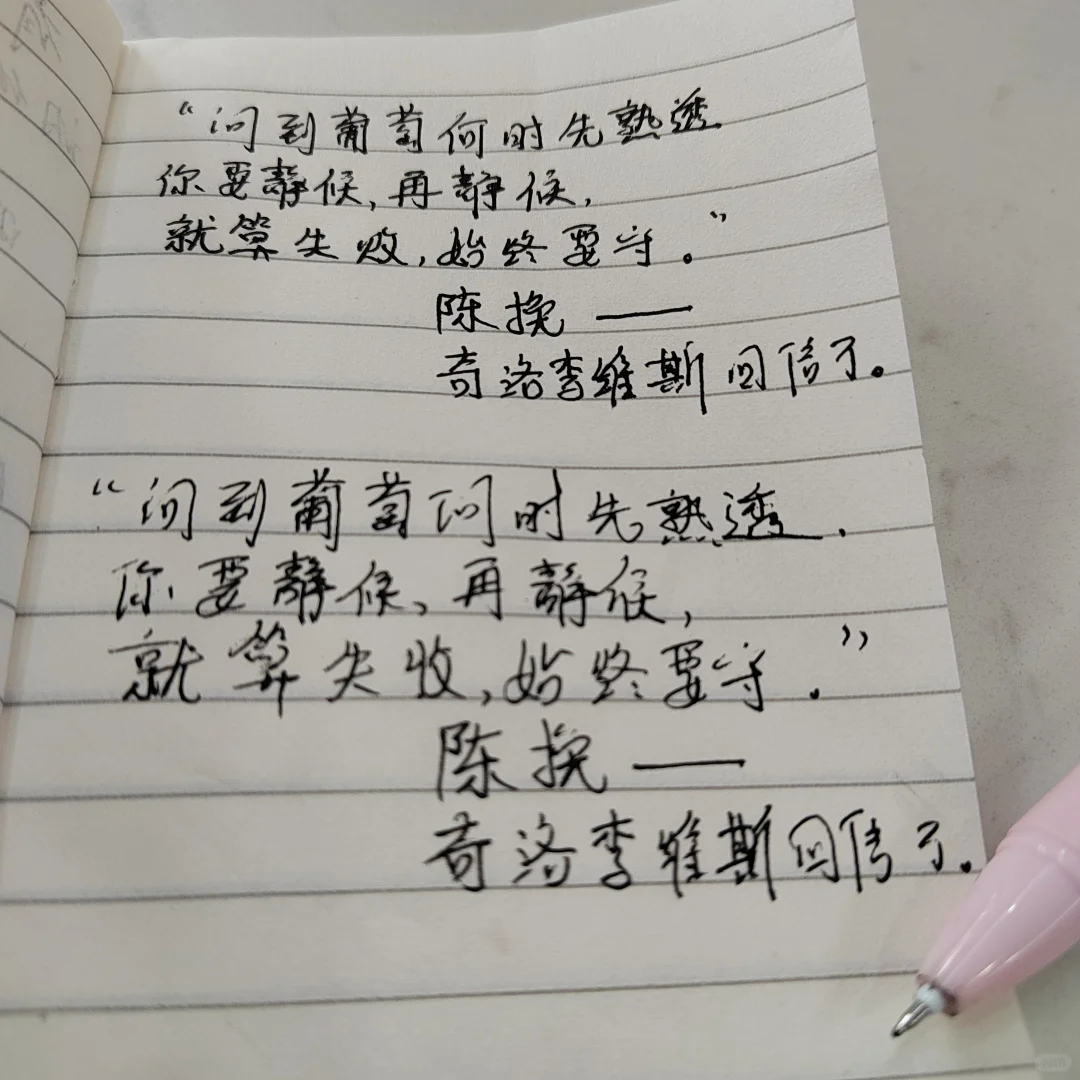 “问到葡萄何时先熟透
你要静候，再静候，
就算失败，始终要守。”
陈挽——
奇洛李维斯回信了。
“问到葡萄何时先熟透．
你要静候、再静候，
就算失收，始终要守．”
陈挽——
奇洛李维斯回信了．